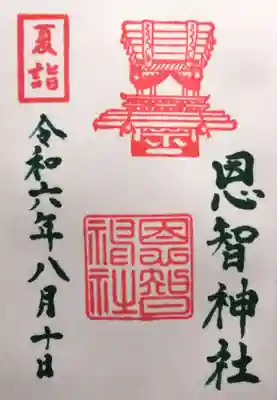 恩智神社
恩智
神社
夏詣
令和六年八月十日